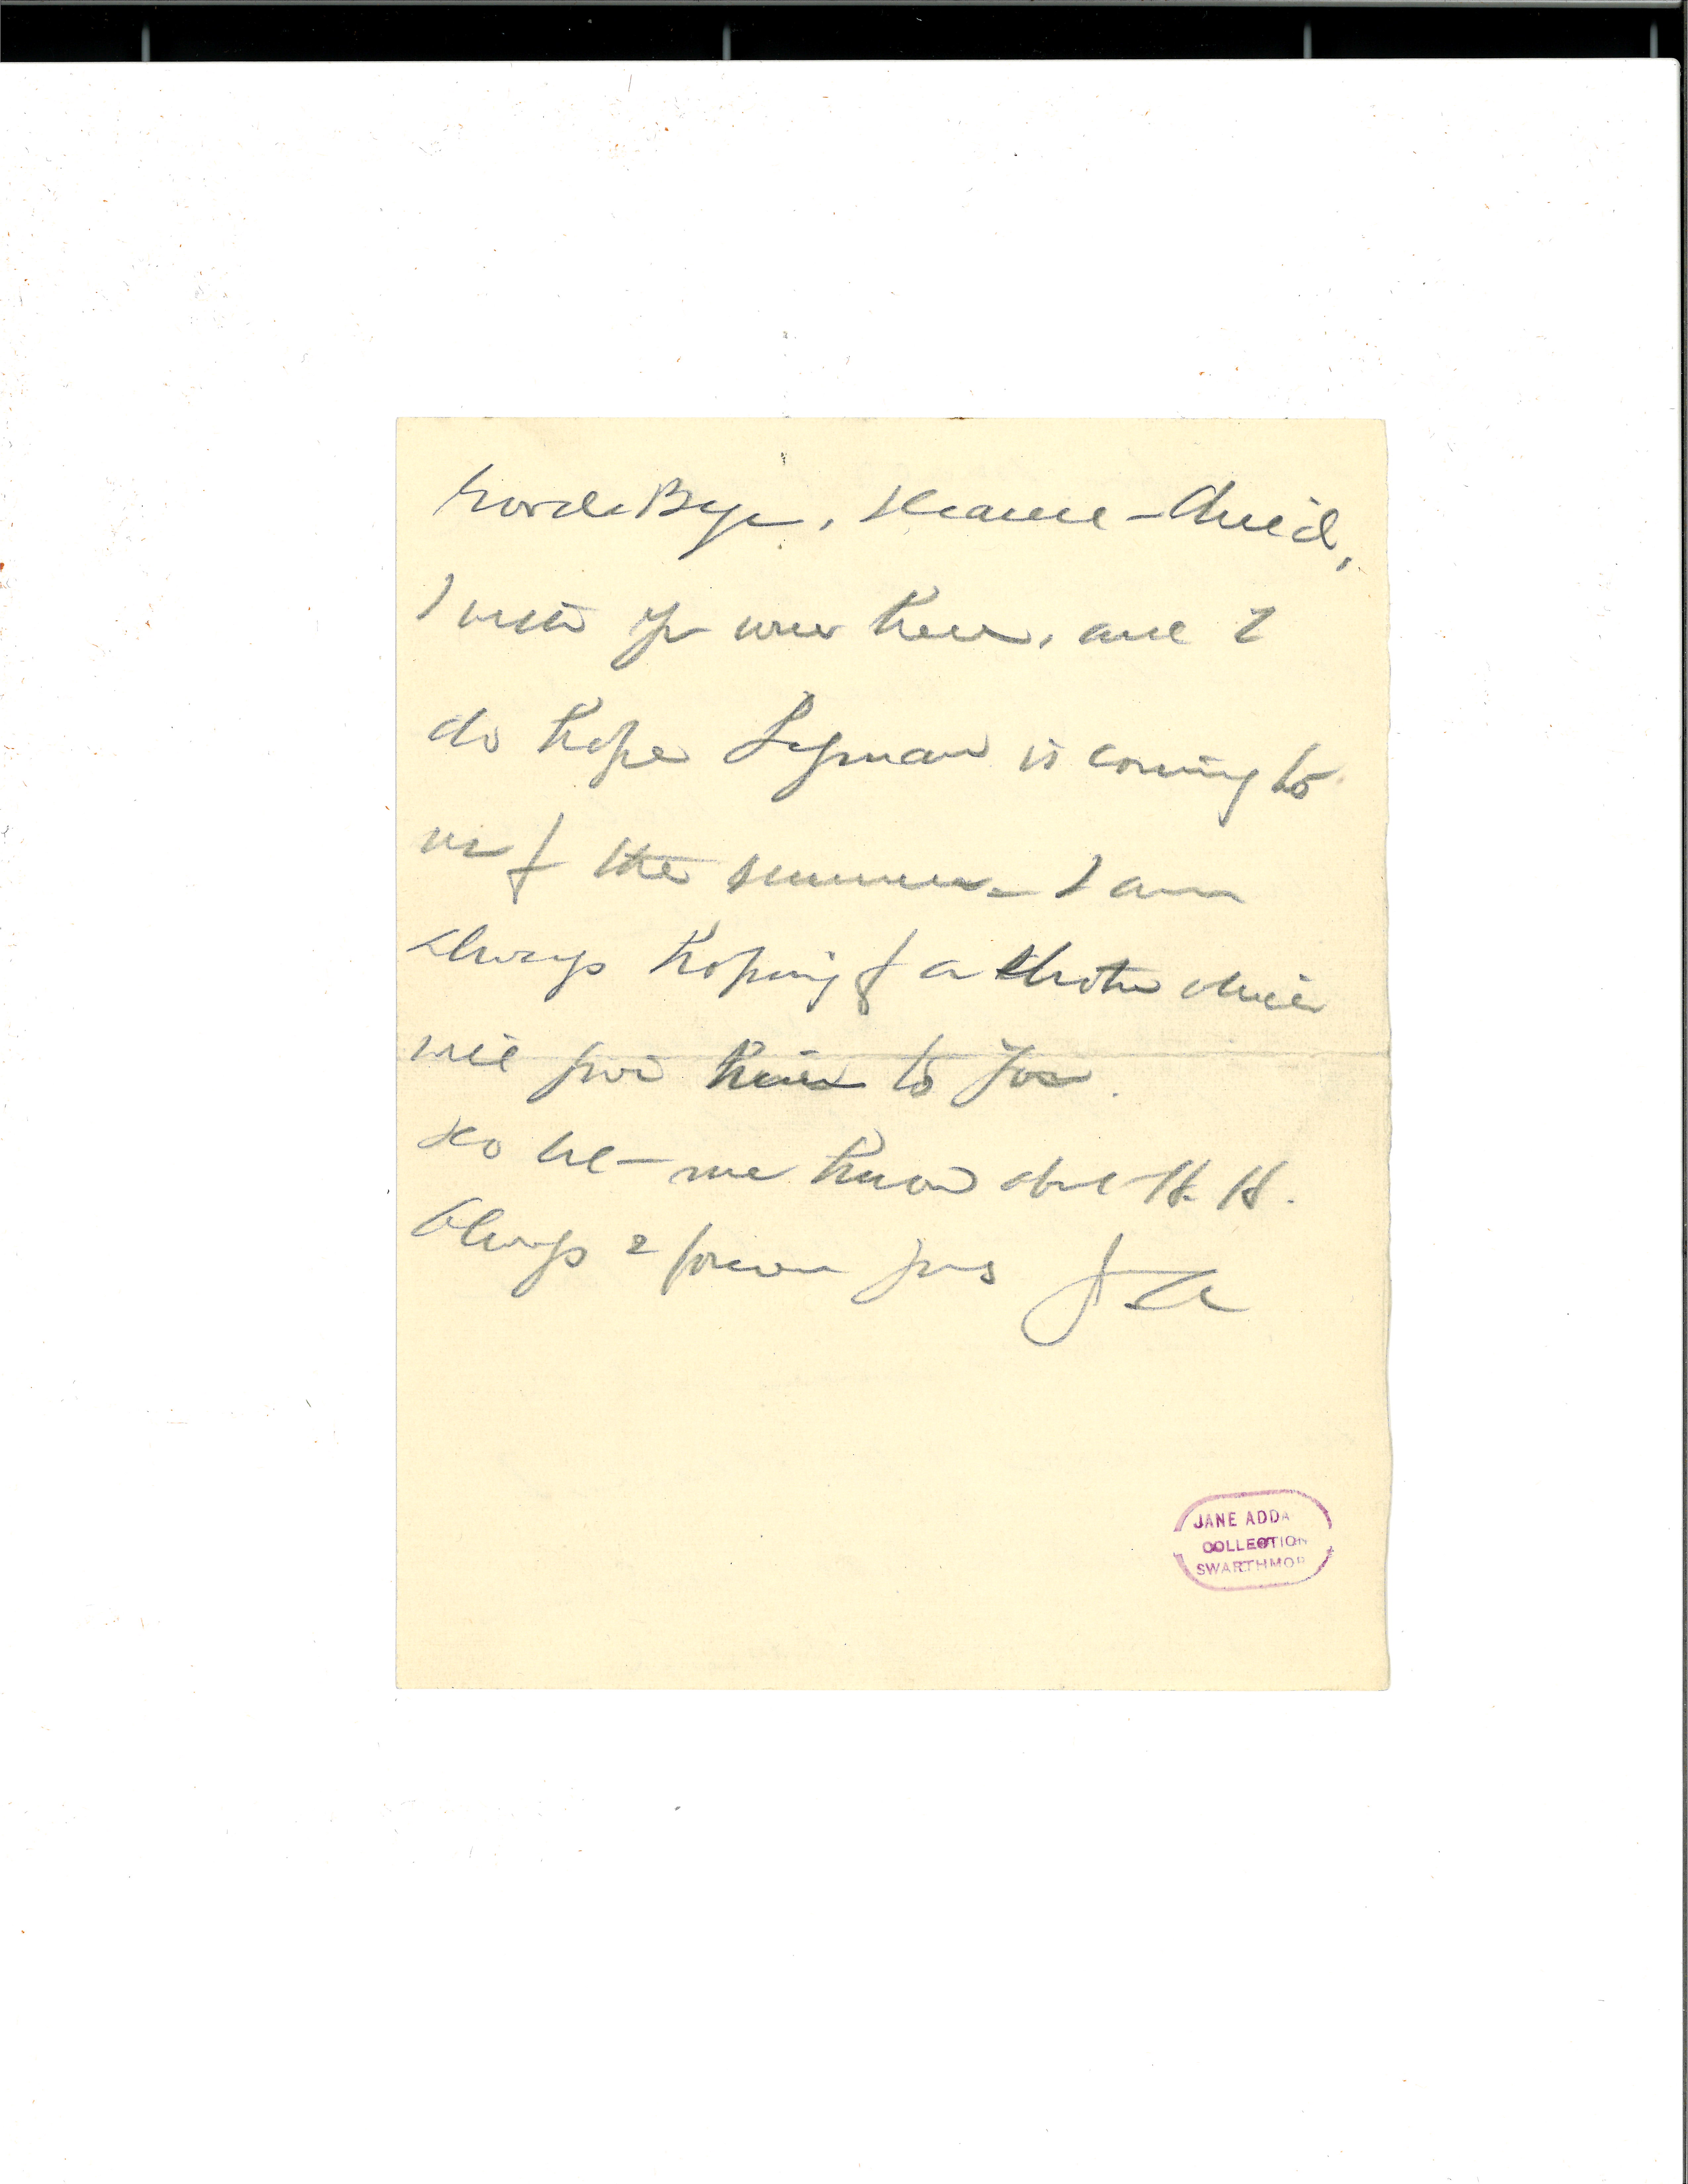 Good-Bye, dearest child,
I wish you were here, and I
do hope Lyman is coming to
us for the summer. I am
always hoping for a photo which
will give him to you.
Do let me know about H. H.
Always & forever yours JA
JANE ADDA
COLLECTION
SWARTHMOR